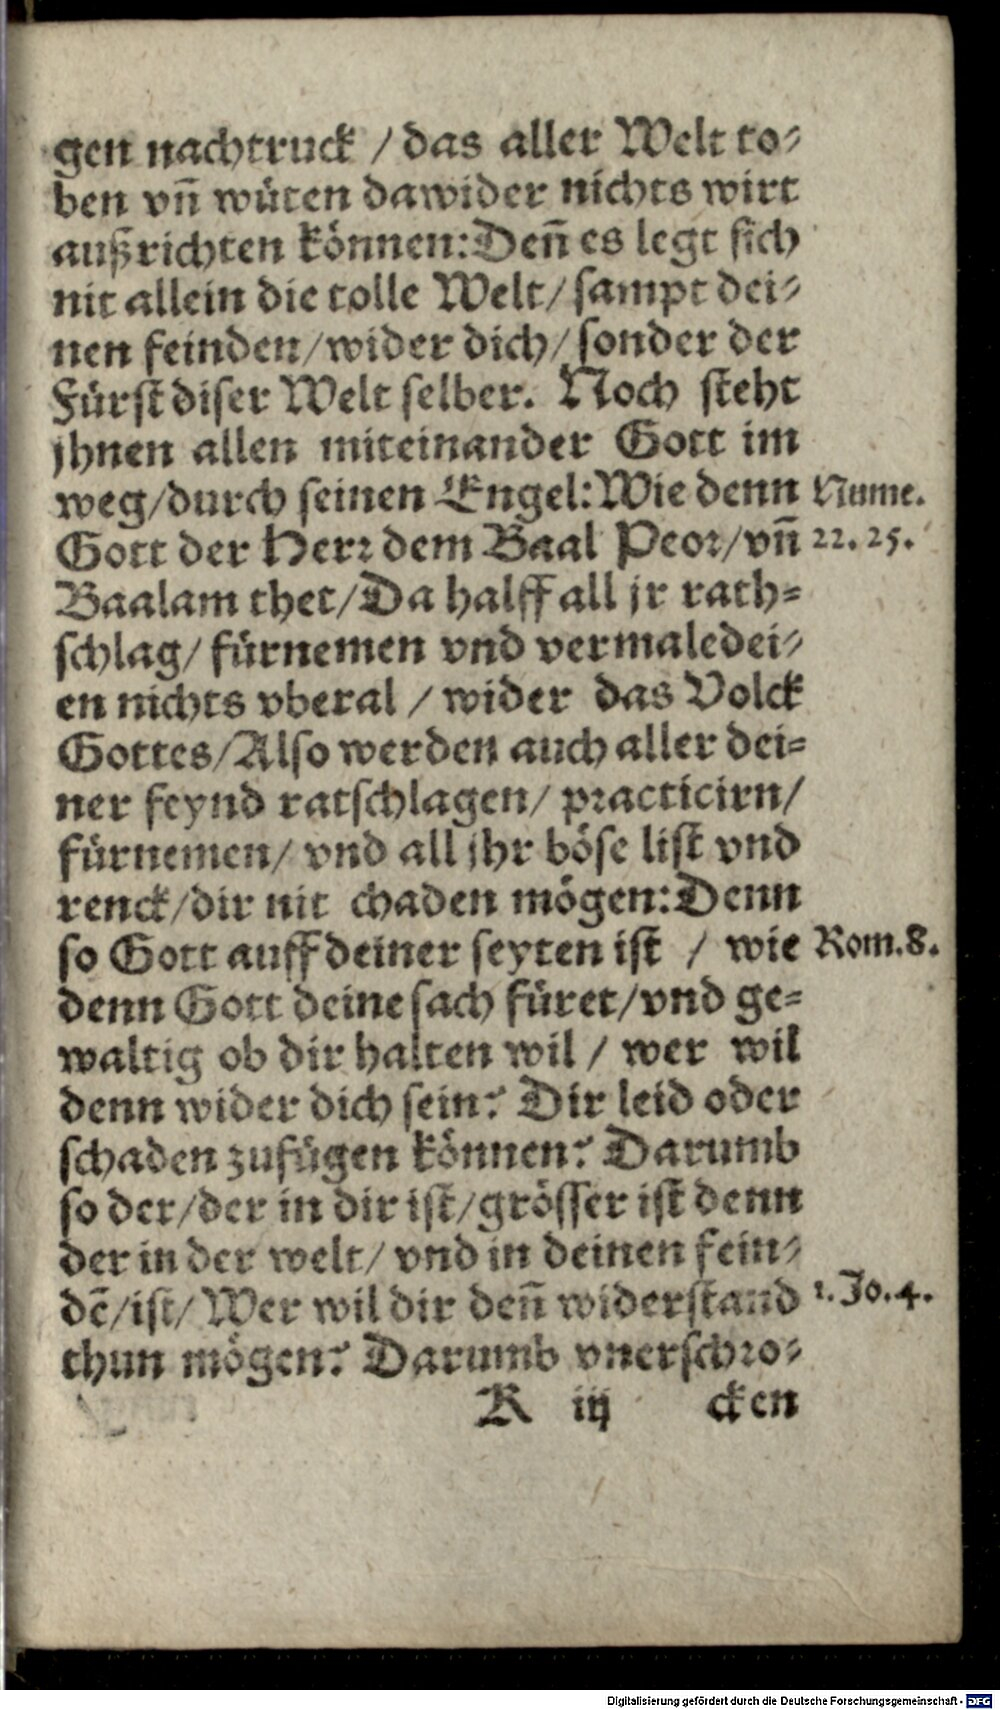 gen nachtruck / das aller Welt to⸗
ben vñ wüten dawider nichts wirt
außrichten können: Deñ es legt sich
nit allein die tolle Welt / sampt dei⸗
nen feinden / wider dich / sonder der
Fürst diser Welt selber. Noch steht
jhnen allen miteinander Gott im
weg / durch seinen Engel: Wie denn Nume.
Gott der Herr dem Baal Peor / vñ 22. 25.
Baalam thet / Da halff all jr rath⸗
schlag / fürnemen vnd vermaledei⸗
en nichts vberal / wider das Volck
Gottes / Also werden auch aller dei⸗
ner feynd ratschlagen / practicirn /
fürnemen / vnd all jhr böse list vnd
renck / dir nit chaden mögen: Denn
so Gott auff deiner seyten ist / wie Rom. 8.
denn Gott deine sach füret / vnd ge⸗
waltig ob dir halten wil / wer wil
denn wider dich sein? Dir leid oder
schaden zufügen können? Darumb
so der / der in dir ist / grösser ist denn
der in der welt / vnd in deinen fein⸗
dē / ist / Wer wil dir deñ widerstand 1. Jo. 4.
thun mögen? Darumb vnerschro⸗
K iij cken
Digitalisierung gefördert durch die Deutsche Forschungsgemeinschaft - DFG